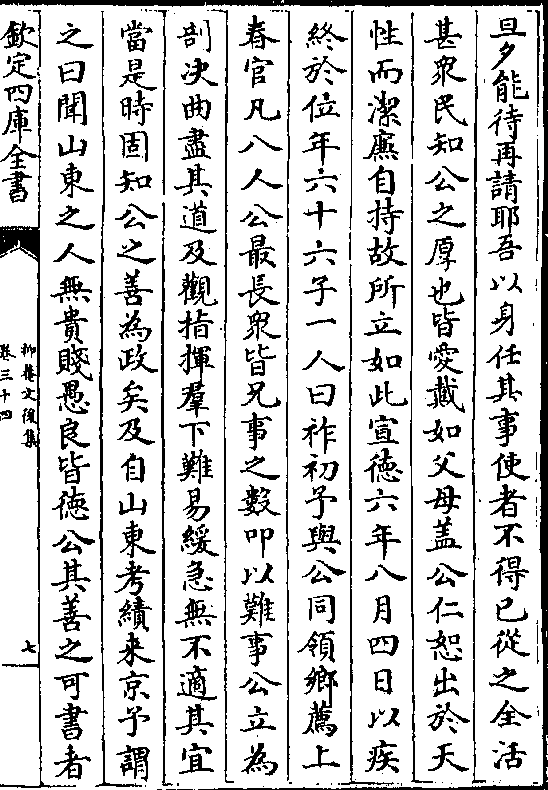 旦夕能待再請耶吾以身任其事使者不得已從之全活
甚衆民知公之厚也皆愛戴如父母盖公仁恕出於天
性而潔廉自持故所立如此宣徳六年八月四日以疾
終於位年六十六子一人曰祚初予與公同領鄉薦上
春官凡八人公最長衆皆兄事之數叩以難事公立為
剖決曲盡其道及觀指揮羣下難易緩急無不適其宜
當是時固知公之善為政矣及自山東考績來京予謂
之曰聞山東之人無貴賤愚良皆徳公其善之可書者
欽定四庫全書
抑菴文後集
卷三十四
七